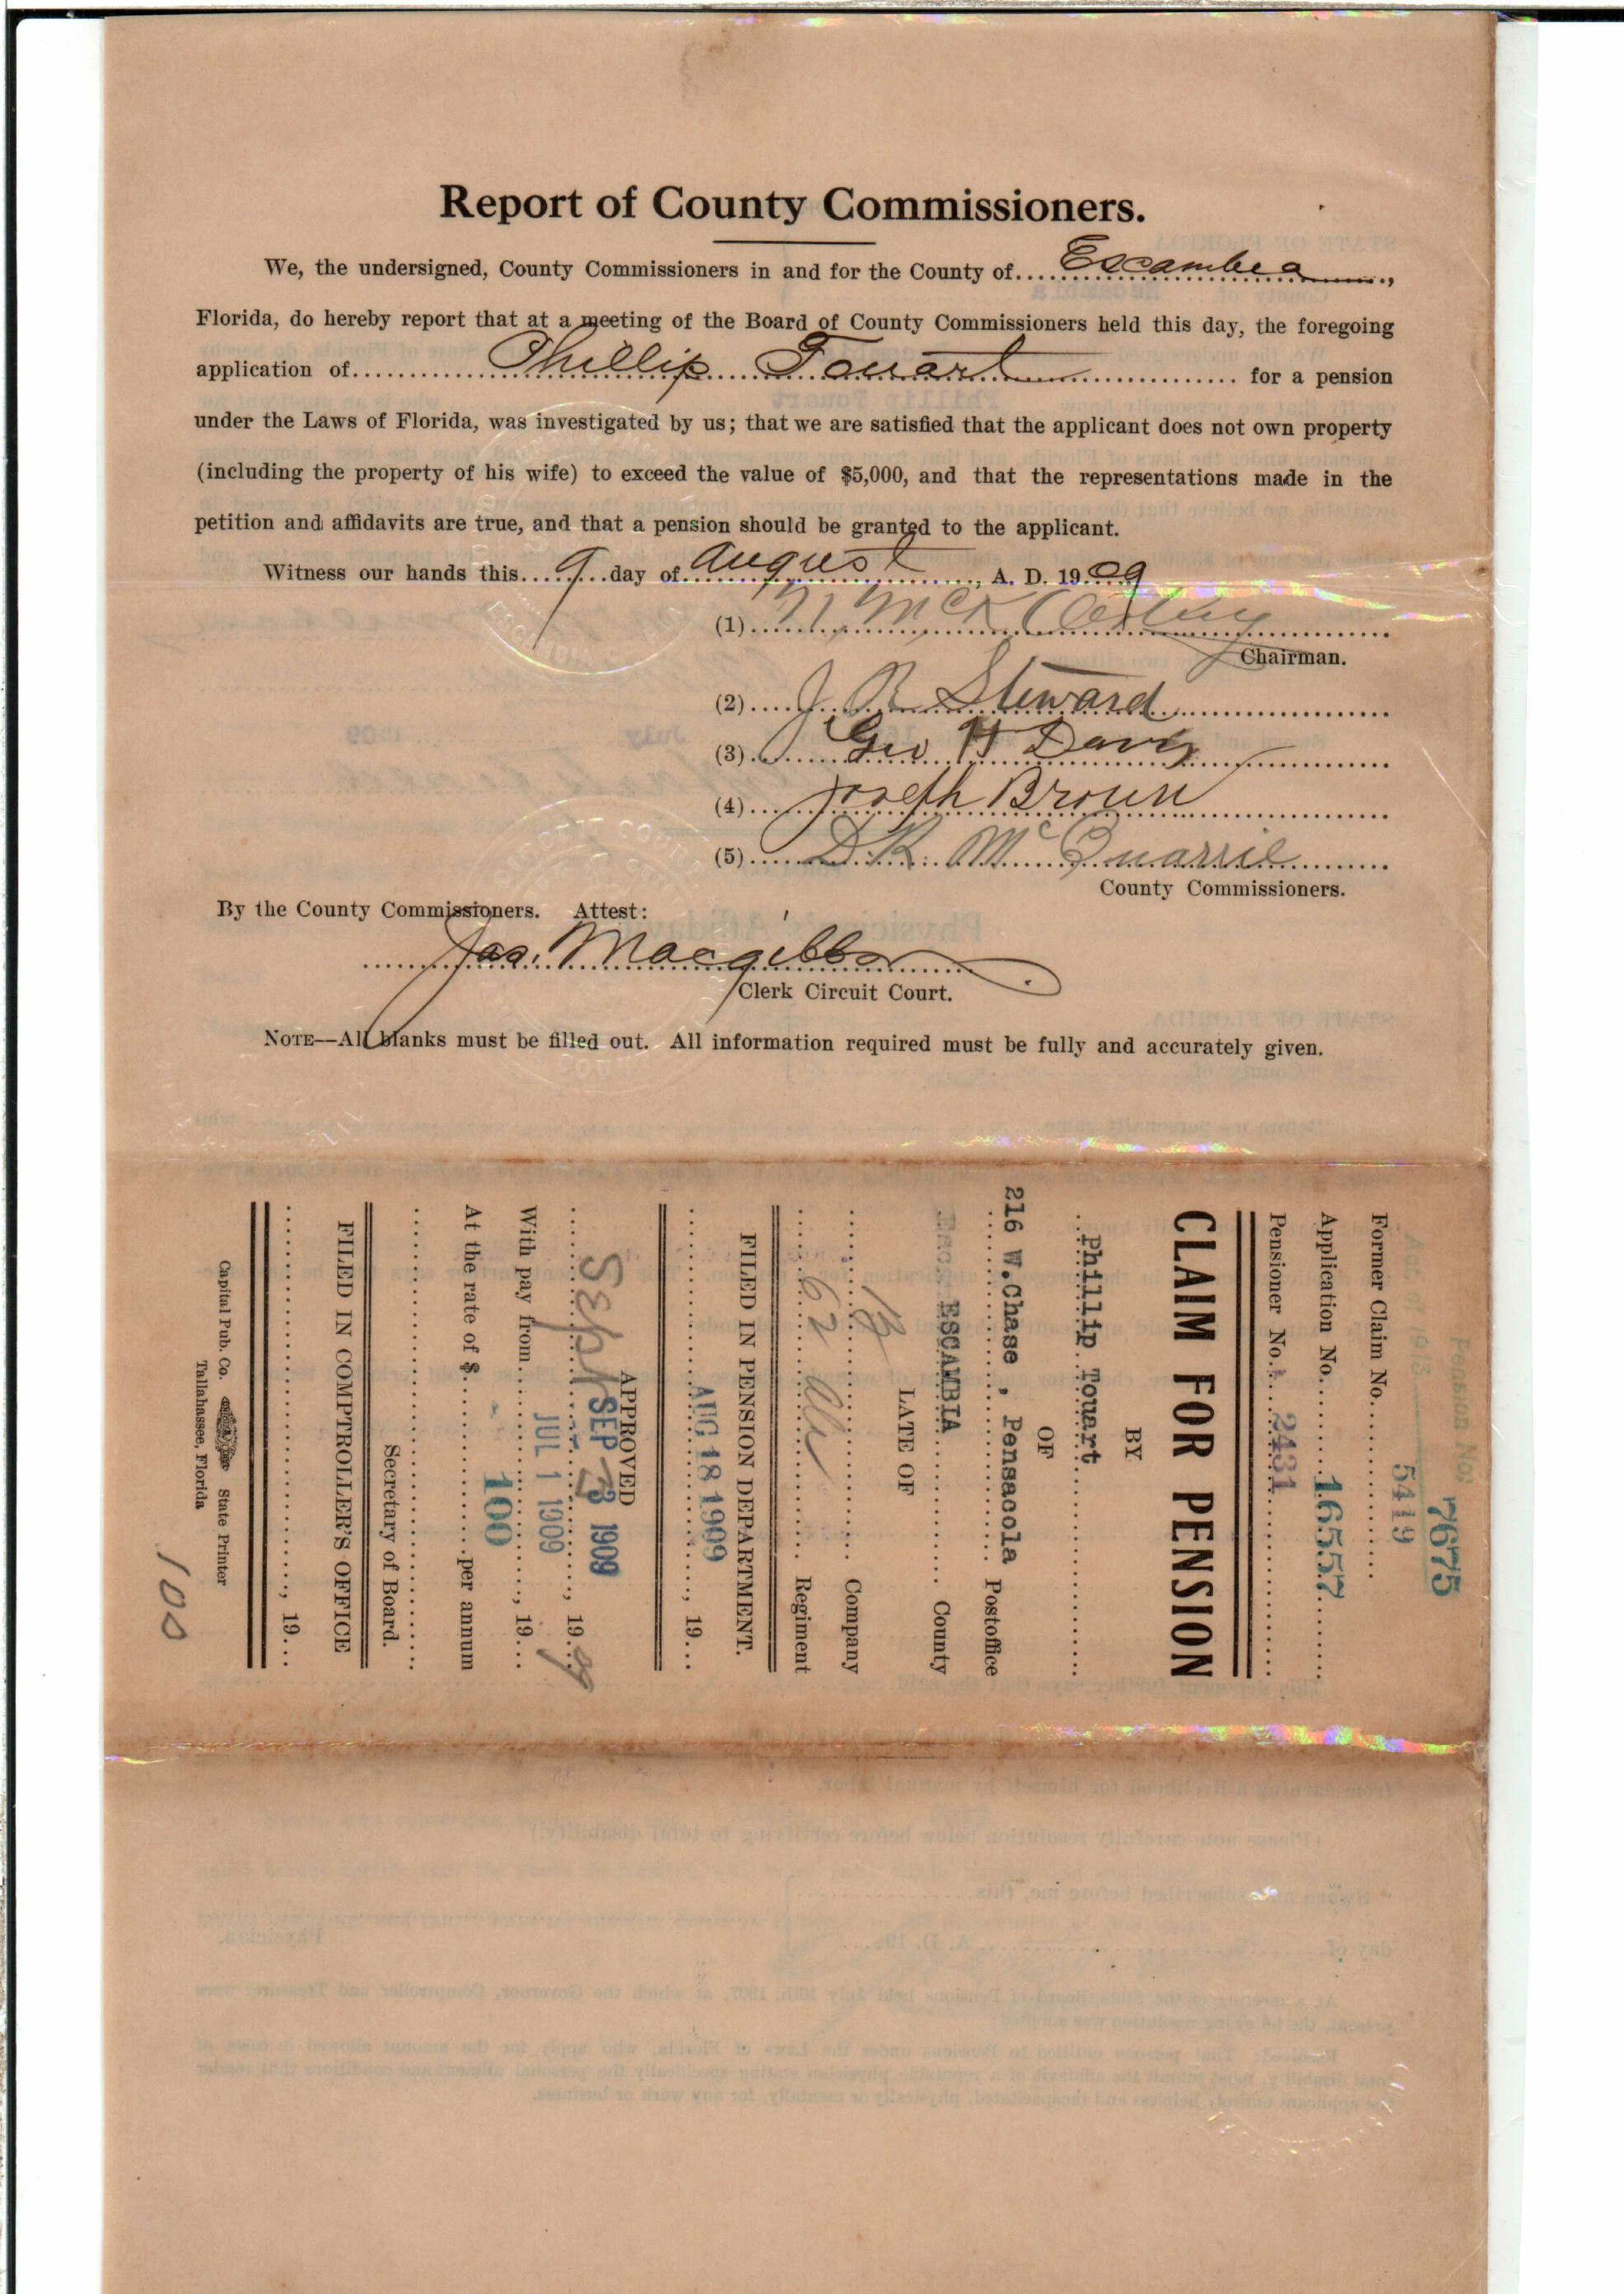 Report of County Commissioners.
We, the undersigned, County Commissioners in and for the County of....Escambia....,
Florida, do hereby report that at a meeting of the Board of County Commissioners held this day, the foregoing
application of....Phillip Touart.... for a pension
under the Laws of Florida, was investigated by us; that we are satisfied that the applicant does not own property
(including the property of his wife) to exceed the value of $5,000, and that the representations made in the
petition and affidavits are true, and that a pension should be granted to the applicant.
Witness our hands this....9....day of....August...., A. D. 19.09
(1)....
Chairman.
(2)....J. R. Steward
(3)....Geo H Davis
(4)....Joseph Brown
(5)....D.K. McQuarrie
County Commissioners.
By the County Commissioners. Attest:
Jas. Macgibbon
Clerk Circuit Court.
NOTE—All blanks must be filled out. All information required must be fully and accurately given.
Pension No. 7675
Act of 1913
Former Claim No. 5419
Application No. 16557
Pensioner No. 2431
CLAIM FOR PENSION
BY
Phillip Touart
OF
216 W.Chase , Pensacola Postoffice
ESCAMBIA County
LATE OF
B Company
62 Ala Regiment
FILED IN PENSION DEPARTMENT.
AUG 18 1909, 19...
APPROVED
SEP 1909, 1909
With pay from JUL 1 1909, 19...
At the rate of $ 100 per annum
Secretary of Board.
FILED IN COMPTROLLER'S OFFICE
, 19...
Capital Pub. Co. State Printer
Tallahassee, Florida
100